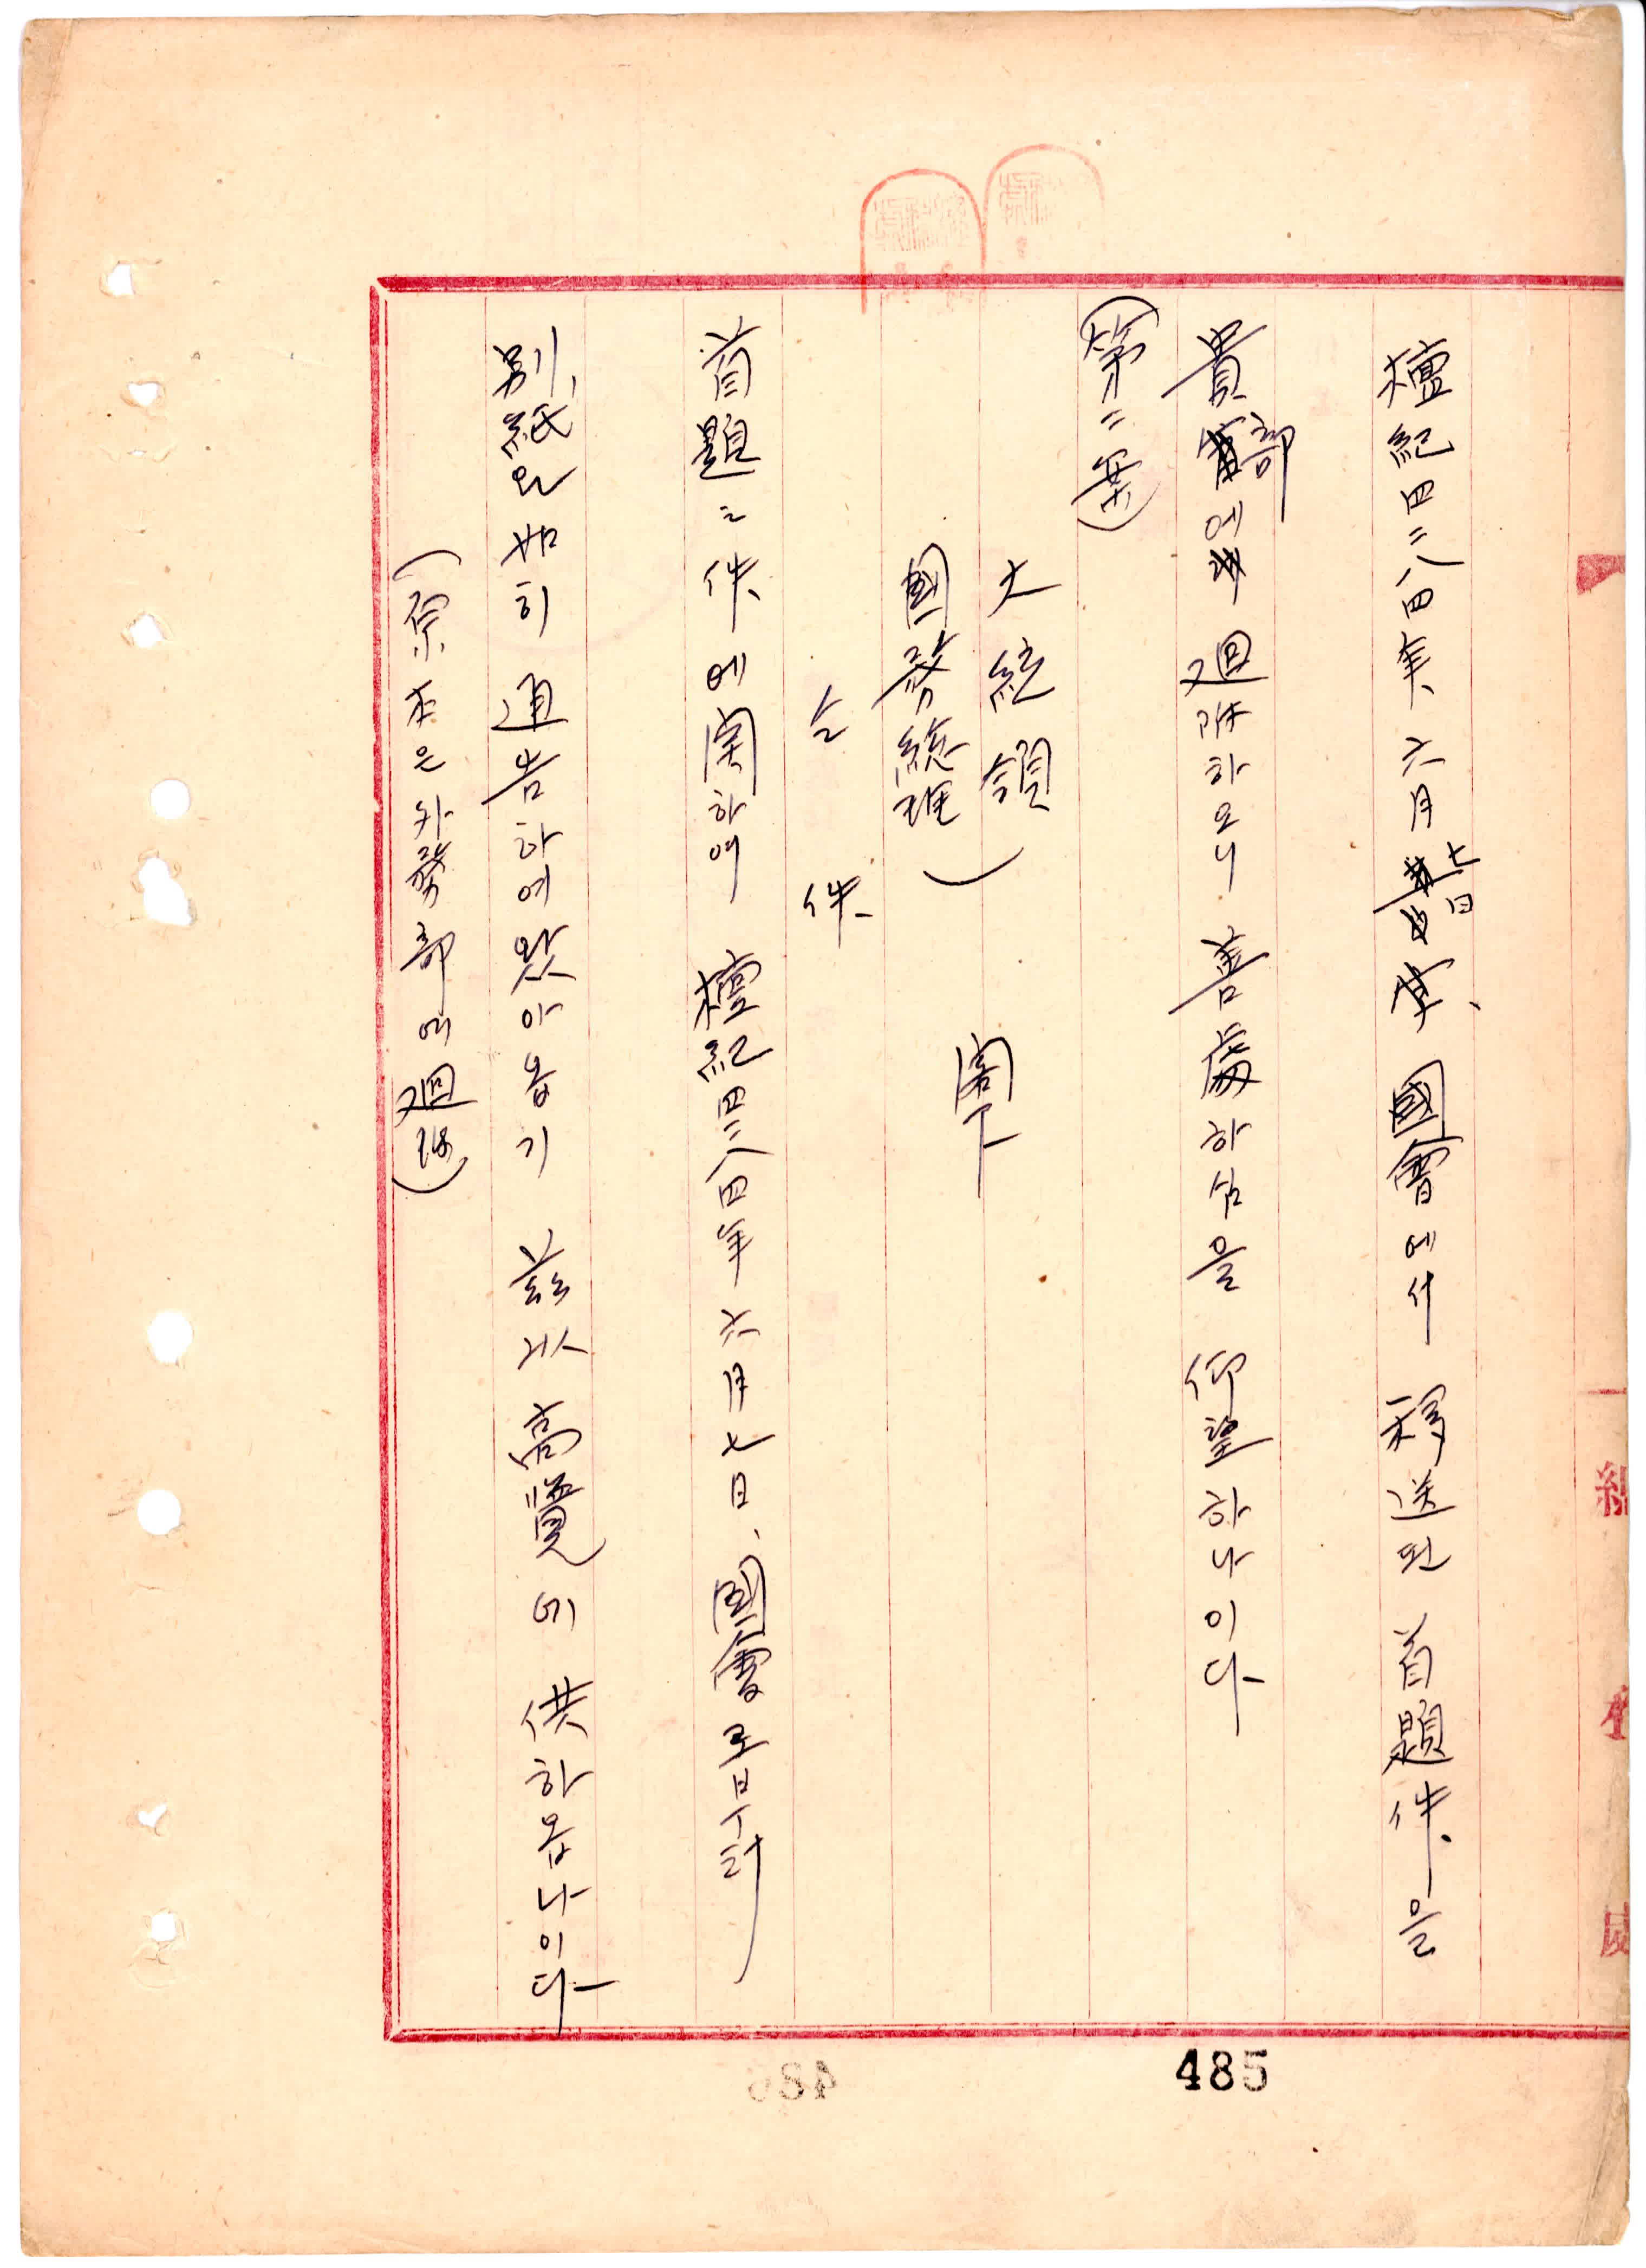 檀紀四二八四年六月七日 國會에서 移送된 首題件을
貴部에 廻附하오니 善處하심을 仰望하나이다
(第二案)
大統領
國務總理) 閣下
仝 件
首題之件에 関하여 檀紀四二八四年六月七日、國會로부터
別紙와 如히 通告하여왔아옵기 玆以 高覽에 供하옵나이다
(原本은 外務部에 廻附)
485